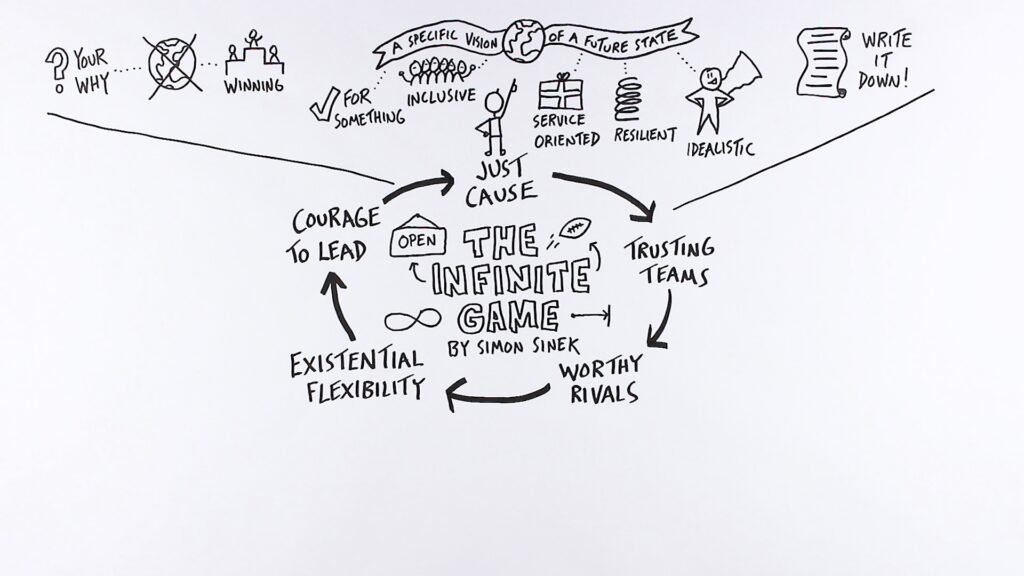 YOUR
WHY
WINNING
A SPECIFIC VISION OF A FUTURE STATE
FOR
SOMETHING
INCLUSIVE
SERVICE
ORIENTED
RESILIENT
IDEALISTIC
WRITE
IT
DOWN!
JUST
CAUSE
COURAGE
TO LEAD
OPEN
THE
INFINITE
GAME
BY SIMON SINEK
TRUSTING
TEAMS
EXISTENTIAL
FLEXIBILITY
WORTHY
RIVALS